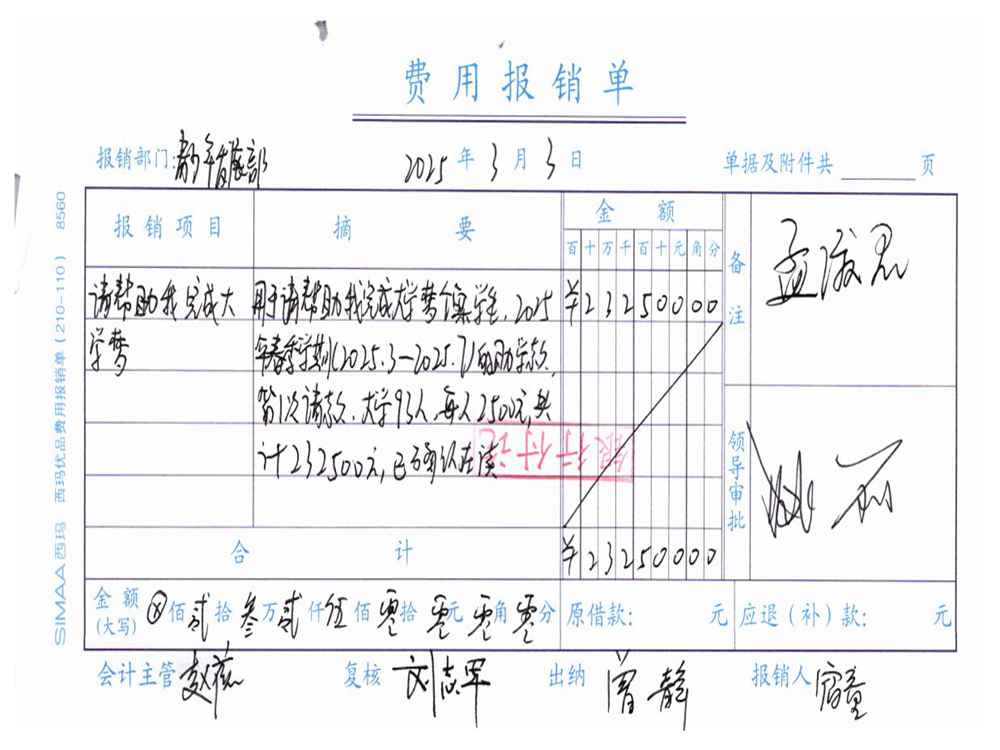 费用报销单
报销部门:青少年发展部 2025年3月3日 单据及附件共 页
报销项目 摘要 金额 备注
百十万千百十元角分
请帮助我完成大
学梦
用于请帮助我完成大学梦个案学生,2025
年春季学期(2025.3-2025.7)的助学款,
第1次请款.大学93人,每人2500元,共
计232500元,已确认在读
¥23250000
银行付讫
领导审批
合计 ¥23250000
金额(大写) ⊗佰贰拾叁万贰仟伍佰零拾零元零角零分 原借款: 元 应退(补)款: 元
会计主管 复核 刘志军 出纳 曾静 报销人
SIMAA西玛 西玛优品费用报销单(210-110) 8560